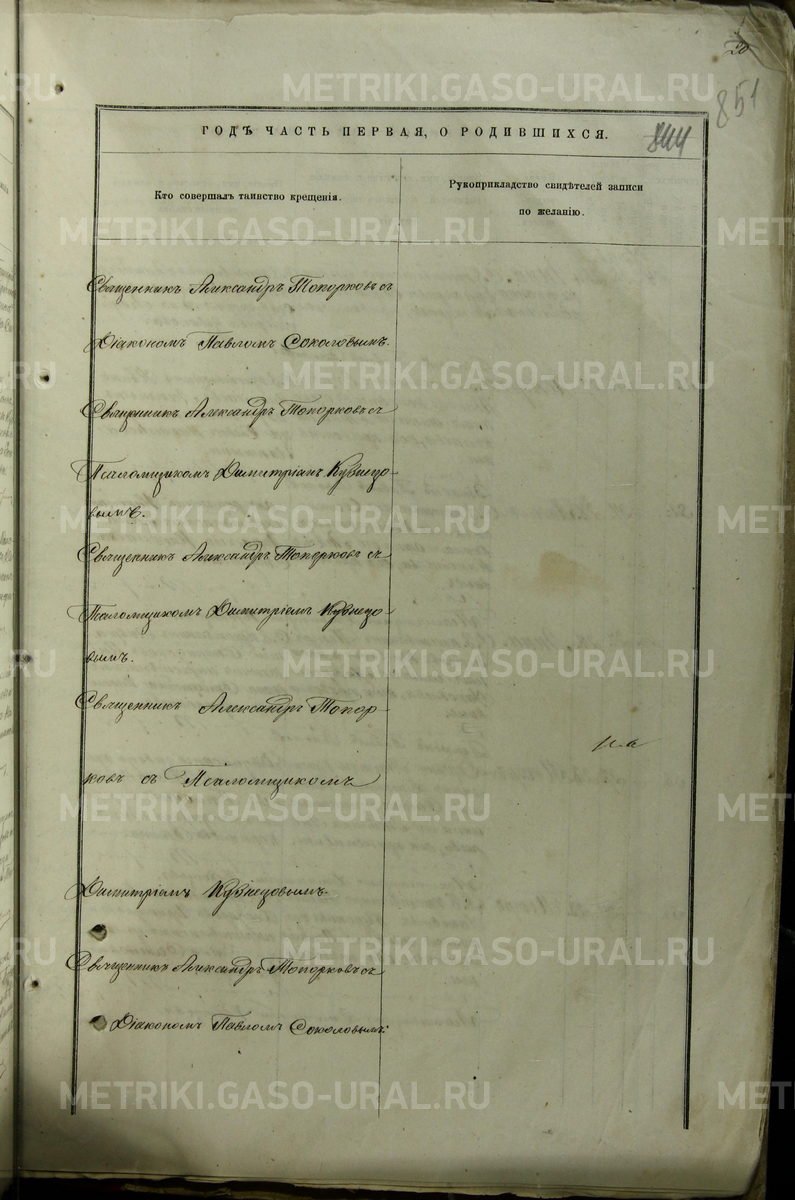 20
851
844
ГОДЪ ЧАСТЬ ПЕРВАЯ, О РОДИВШИХСЯ.
Кто совершалъ таинство крещенія.
Рукоприкладство свидѣтелей записи
по желанію.
Священникъ Александръ Топорковъ съ
Діакономъ Павломъ Соколовымъ.
Священникъ Александръ Топорковъ съ
Псаломщикомъ Димитріемъ Кузнецо-
вымъ.
Священникъ Александръ Топорковъ съ
Псаломщикомъ Димитріемъ Кузнецо-
вымъ.
Священникъ Александръ Топор-
ковъ съ Псаломщикомъ
Димитріемъ Кузнецовымъ.
Священникъ Александръ Топорковъ съ
Діакономъ Павломъ Соколовымъ.
METRIKI.GASO-URAL.RU